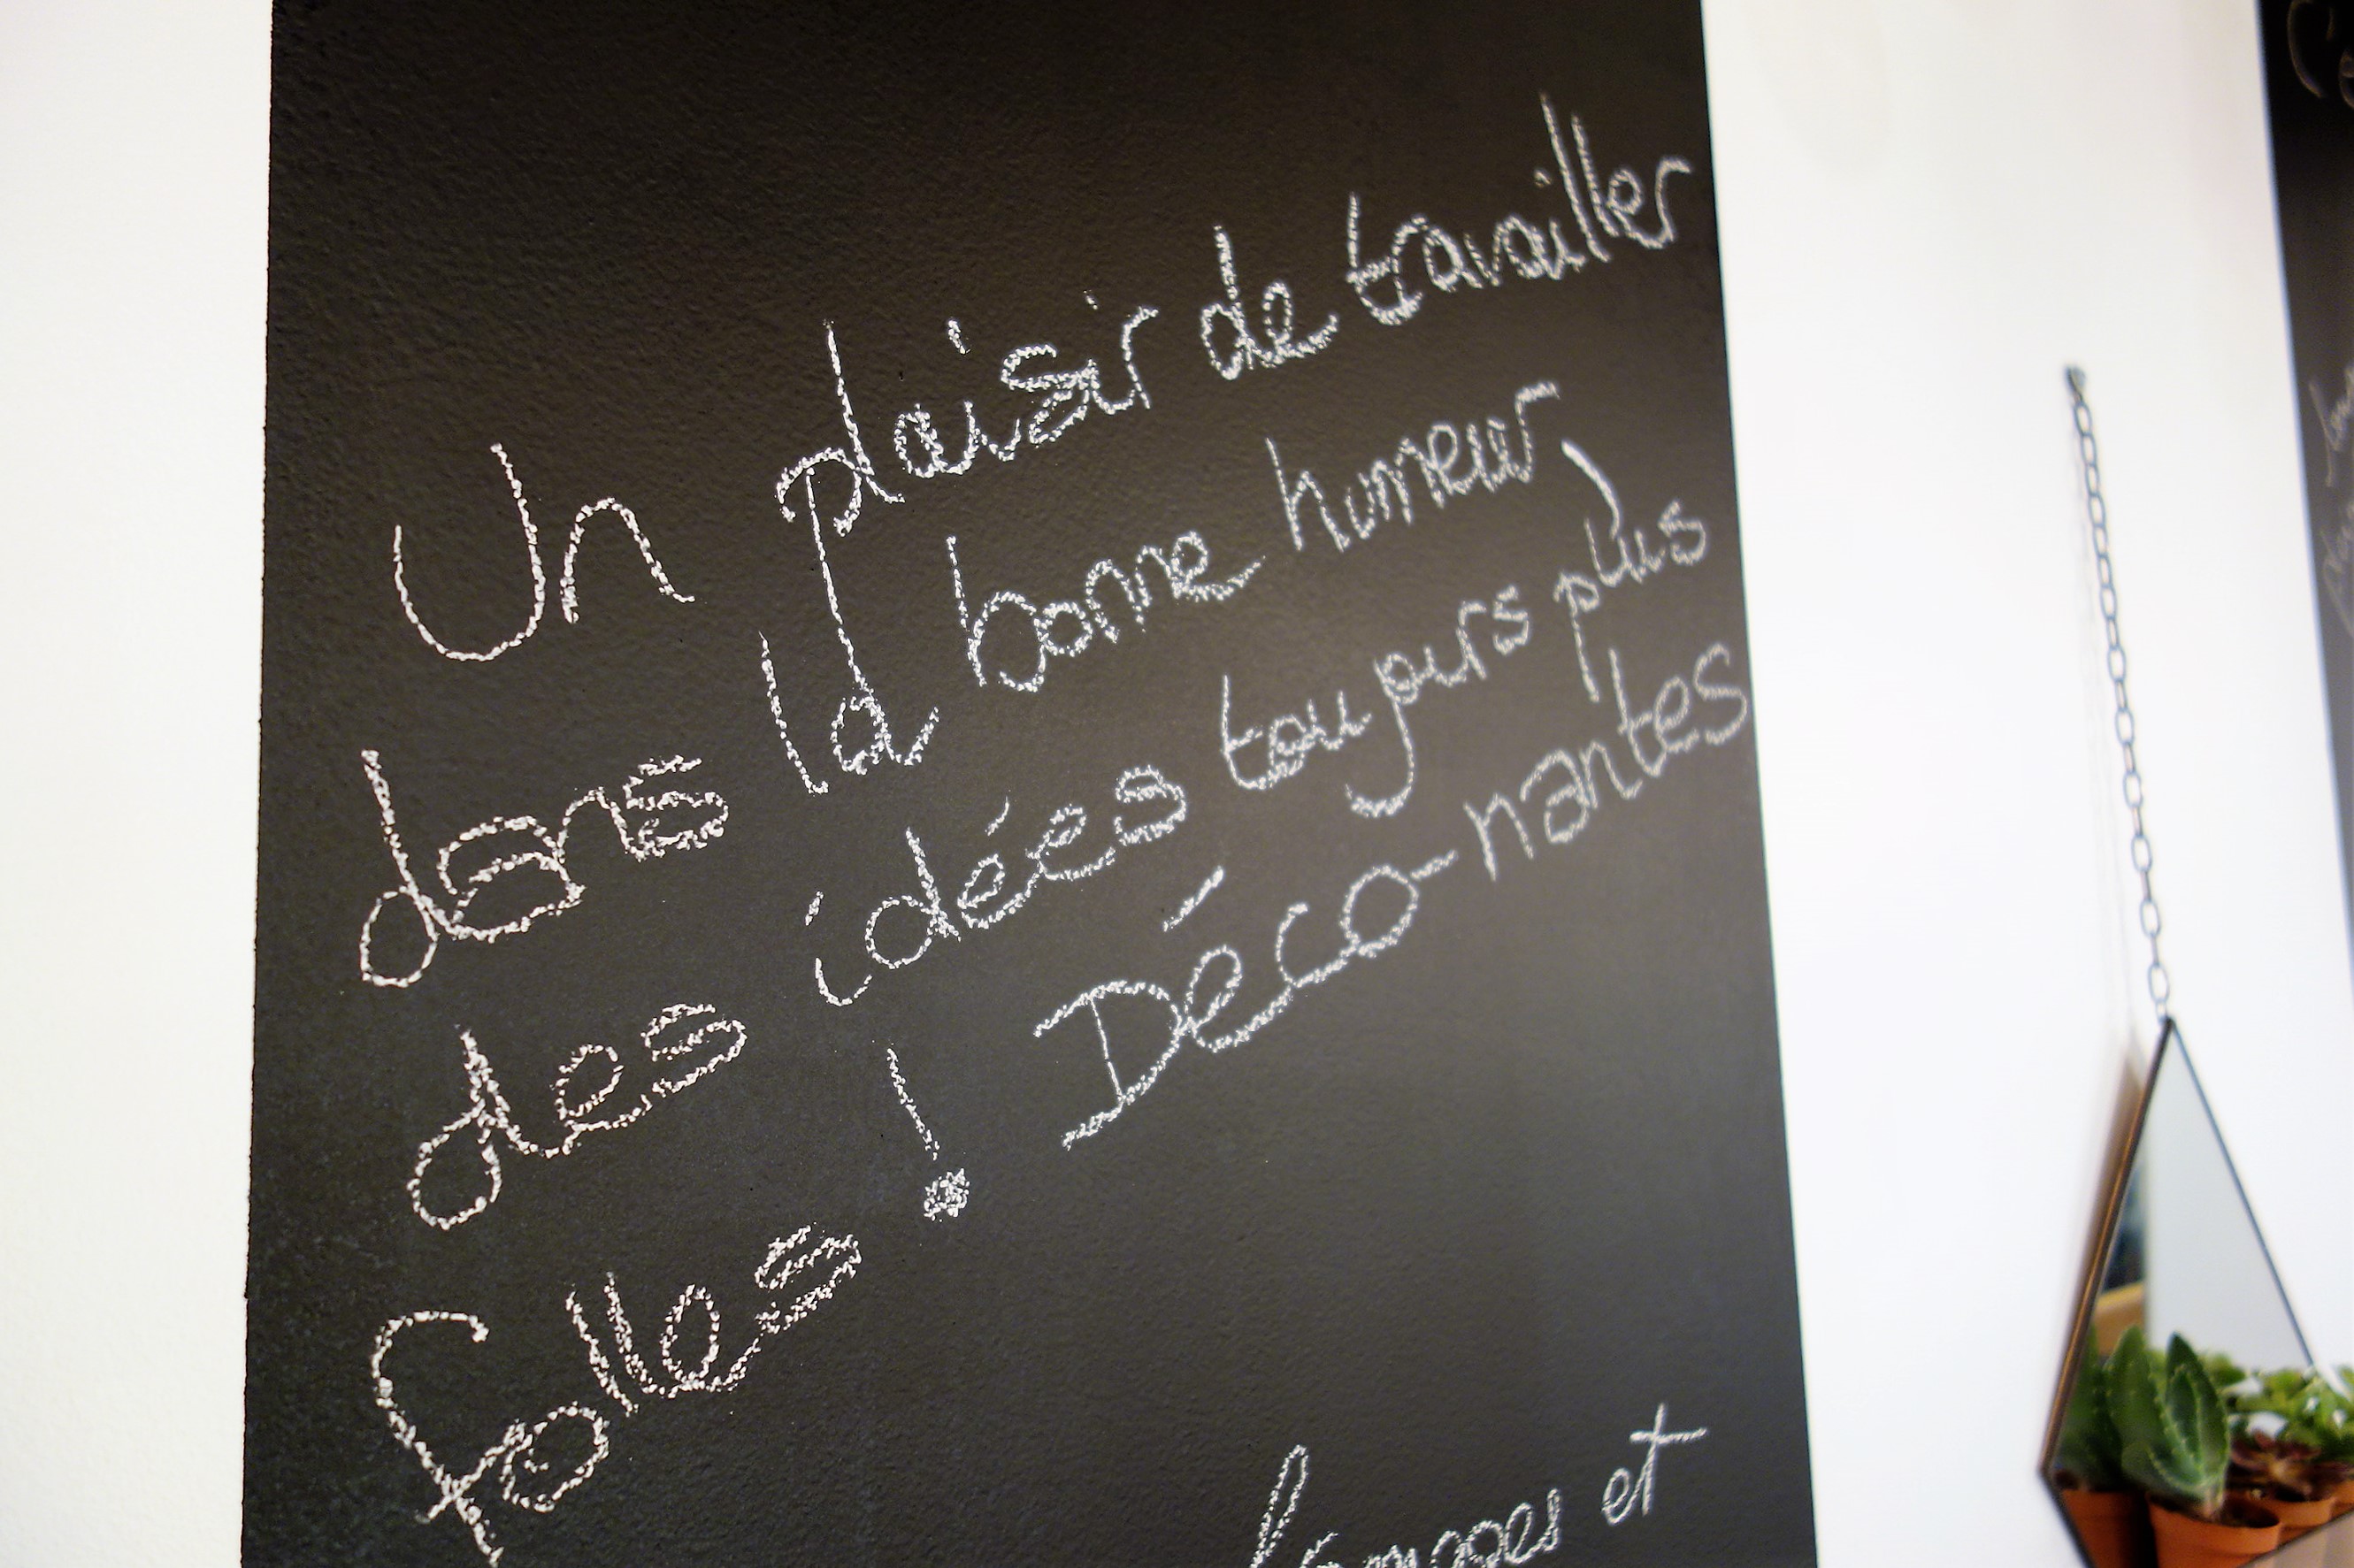 Un plaisir de travailler
dans la bonne humeur,
des idées toujours plus
folles ! Déco-nantes
et